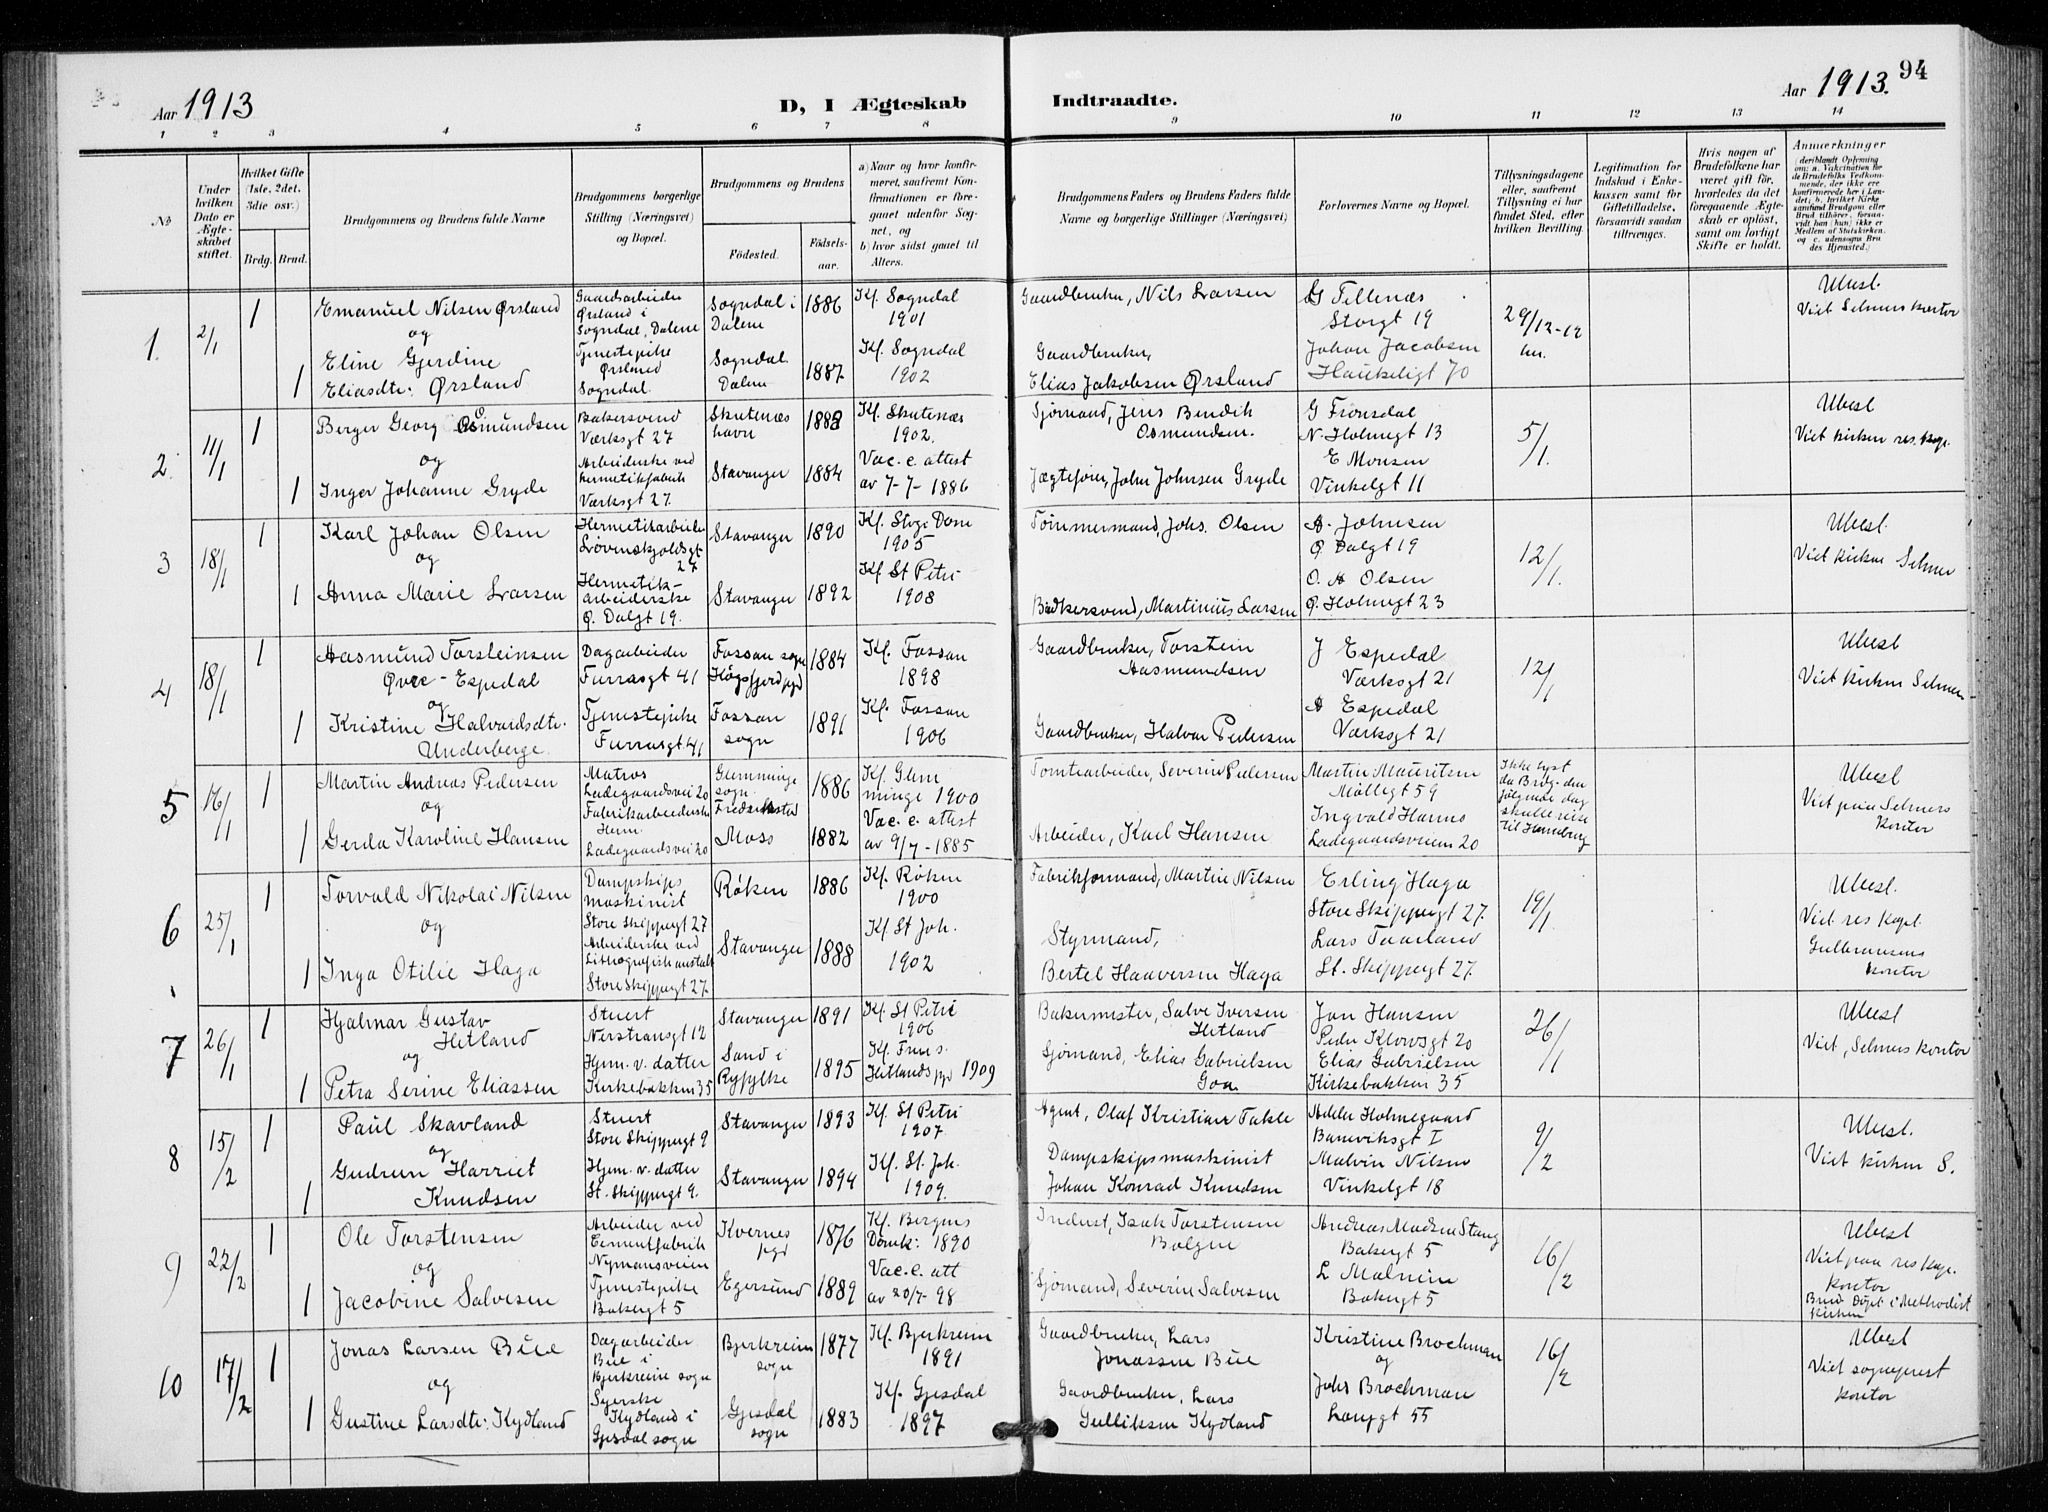 Aar 1913
D, I Ægteskab
Indtraadte.
Aar 1913.
94
1 2 3 4 5 6 7 8 9 10 11 12 13 14
№
Under hvilken Dato er Ægteskabet stiftet.
Hvilket Gifte (1ste, 2det, 3die osv.)
Brdg. Brud.
Brudgommens og Brudens fulde Navne
Brudgommens borgerlige Stilling (Næringsvei) og Bopæl.
Brudgommens og Brudens
Fødested.
Fødselsaar.
a) Naar og hvor konfirmeret, saafremt Konfirmationen er foregaaet udenfor Sognet, og
b) hvor sidst gaaet til Alters.
Brudgommens Faders og Brudens Faders fulde Navne og borgerlige Stillinger (Næringsvei)
Forlovernes Navne og Bopæl.
Tillysningsdagene eller, saafremt Tillysning ei har fundet Sted, efter hvilken Bevilling.
Legitimation for Indskud i Enkekassen samt for Giftetilladelse, forsaavidt saadan tiltrænges.
Hvis nogen af Brudefolkene har været gift før, hvorledes da det foregaaende Ægteskab er opløst, samt om lovligt Skifte er holdt.
Anmærkninger
(deriblandt Oplysning om: a. Vakcination for de Brudefolks Vedkommende, der ikke ere konfirmerede her i Landet; b. hvilket Kirkesamfund Brudgom eller Brud tilhører, forsaavidt han (hun) ikke er Medlem af Statskirken, og c. udensogns Brudes Hjemsted.)
1. 2/1 1
Emanuel Nilsen Ørsland
og
Eline Gjerdine
1 Eliasdtr. Ørsland
Gaardsarbeider
Ørsland i
Sogndal, Dalene
Tjenestepike
Ørsland
Sogndal
Sogndal i
Dalene
Sogndal
Dalene
1886
1887
Kf. Sogndal
1901
Kf. Sogndal
1902
Gaardbruker, Nils Larsen
Gaardbruker,
Elias Jakobsen Ørsland
G Tellenæs
Storgt 19
Johan Jacobsen
Haukeligt 70
29/12-12
Ubesl.
Viet Selmers kontor
2. 11/1 1
Berger Georg Osmundsen
og
1 Inger Johanne Gryde
Bakersvend
Værksgt 27
Arbeiderske ved
hermetikfabrik
Værksgt 27.
Skutenæs
havn
Stavanger
1882
1884
Kf. Skutenæs
1902.
Vac. c. attest
av 7-7-1886
Sjømand, Jens Bendik
Osmundsen.
Jægtefører, John Johnsen Gryde
G Fronsdal
N. Holmegt 13
E Monsen
Vinkelgt 11
5/1.
Ubesl
Viet kirken res. kap.
3 18/1 1
Karl Johan Olsen
og
1 Anna Marie Larsen
Hermetikarbeider
Løvenskjoldsgt
27
Hermetik-
arbeiderske
Ø. Dalgt 19.
Stavanger
Stavanger
1890
1892
Kf. Stvg. Dom
1905
Kf. St Petri
1908
Tømmermand, Johs. Olsen
Bødkersvend, Martinius Larsen
A. Johnsen
Ø Dalgt 19
O. A Olsen
Ø. Holmegt 23
12/1.
Ubesl.
Viet kirken Selmer
4 18/1 1
Aasmund Torsteinsen
Øvre-Espedal
og
1 Kristine Halvardsdtr.
Underberge.
Dagarbeider
Furrasgt 41
Tjenestepike
Furrasgt 41
Fossan sogn
Høgsfjord pgd
Fossan
sogn
1884
1891
Kf. Fossan
1898
Kf. Fossan
1906
Gaardbruker, Torstein
Aasmundsen
Gaardbruker, Halvor Pedersen
J Espedal
Værksgt 21
A Espedal
Værksgt 21
12/1
Ubesl
Viet kirken Selmer
5 16/1 1
Martin Andreas Pedersen
og
1 Gerda Karoline Hansen
Matros
Ladegaardsvei 20
Fabrikarbeiderske
Herm.
Ladegaardsvei 20
Glemminge
sogn.
Fredrikstad
Moss
1886
1882
Kf. Glem
minge 1900
Vac. c. attest
av 9/7-1885
Tomtearbeider, Severin Pedersen
Arbeider, Karl Hansen
Martin Mauritsen
Møllegt 59
Ingvald Harms
Ladegaardsveien 20
Ikke lyst
da Brdg. den
følgende dag
skulle reise
til Hamburg
Ubesl
Viet paa Selmers
kontor
6 25/1 1
Torvald Nikolai Nilsen
og
1 Inga Otilie Haga
Dampskips
maskinist
Store Skippergt 27
Arbeiderske ved
Litografisk anstalt
Store Skippergt 27.
Røken
Stavanger
1886
1888
Kf. Røken
1900
Kf St Joh.
1902
Fabrikformand, Martin Nilsen
Styrmand,
Bertel Haaversen Haga
Erling Haga
Store Skippergt 27.
Lars Taarland
St. Skippergt 27.
19/1.
Ubesl.
Viet res kapl.
Gulbransens
kontor
7 26/1 1
Hjalmar Gustav
Hetland
og
1 Petra Serine Eliassen
Stuert
Nerstransgt 12
Hjem. v. datter
Kirkebakken 35
Stavanger
Sand i
Ryfylke
1891
1895
Kf. St Petri
1906
Kf. Frues.
Hetlands pgd 1909
Bakermester, Salve Iversen
Hetland
Sjømand, Elias Gabrielsen
Goa
Jon Hansen
Peder Klowsgt 20
Elias Gabrielsen
Kirkebakken 35
26/1
Ubesl
Viet, Selmers kontor
8 15/2 1
Paul Skavland
og
Gudrun Harriet
1 Knudsen
Stuert
Store Skippergt 9
Hjem. v. datter
St. Skippergt 9.
Stavanger
Stavanger
1893
1894
Kf. St Petri
1907.
Kf. St. Joh.
1909.
Agent, Olaf Kristian Takle
Dampskipsmaskinist
Johan Konrad Knudsen
Adeler Holmegaard
Baneviksgt I
Malvin Nilsen
Vinkelgt 18
9/2
Ubesl.
Viet kirken S.
9 22/2 1
Ole Torstensen
og
1 Jacobine Salvesen
Arbeider ved
Cementfabrik
Nymansveien
Tjenestepike
Bakergt 5
Kvernes
pgd
Egersund
1876
1889
Kf. Bergens
Domk: 1890
Vac. c. att
av 20/7-98
Inderst, Isak Torstensen
Bolgen
Sjømand, Severin Salvesen
Andreas Madsen Stang
Bakergt 5
L Malmin
Bakergt 5
16/2
Ubesl
Viet paa res kap.
kontor
Brud Døpt i Methodist
kirken
10 17/2 1
Jonas Larsen Bue
og
1 Gustine Larsdtr. Kydland
Dagarbeider
Bue i
Bjerkreim sogn
Syerske
Kydland i
Gjesdal sogn
Bjerkreim
sogn
Gjesdal
sogn
1877
1883
Kf. Bjerkreim
1891
Kf. Gjesdal
1897
Gaardbruker, Lars
Jonassen Bue
Gaardbruker, Lars
Gulliksen Kydland
Kristine Brochman
og
Johs Brochman
Langgt 55
16/2
Ubesl
Viet sogneprest
kontor